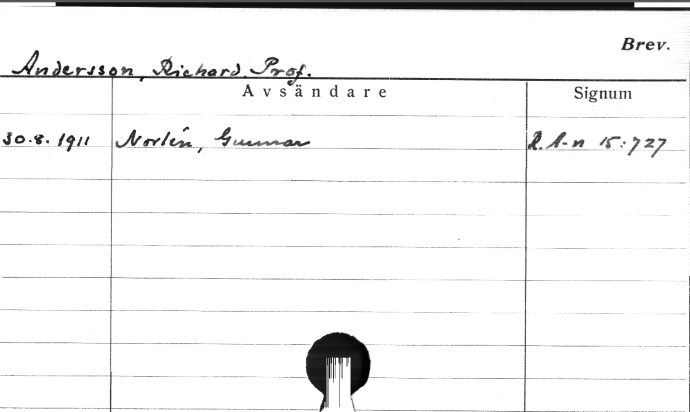 Brev.
Andersson, Richard. Prof.
Avsändare Signum
30.8.1911 Norlén, Gunnar R.A-n 15:727